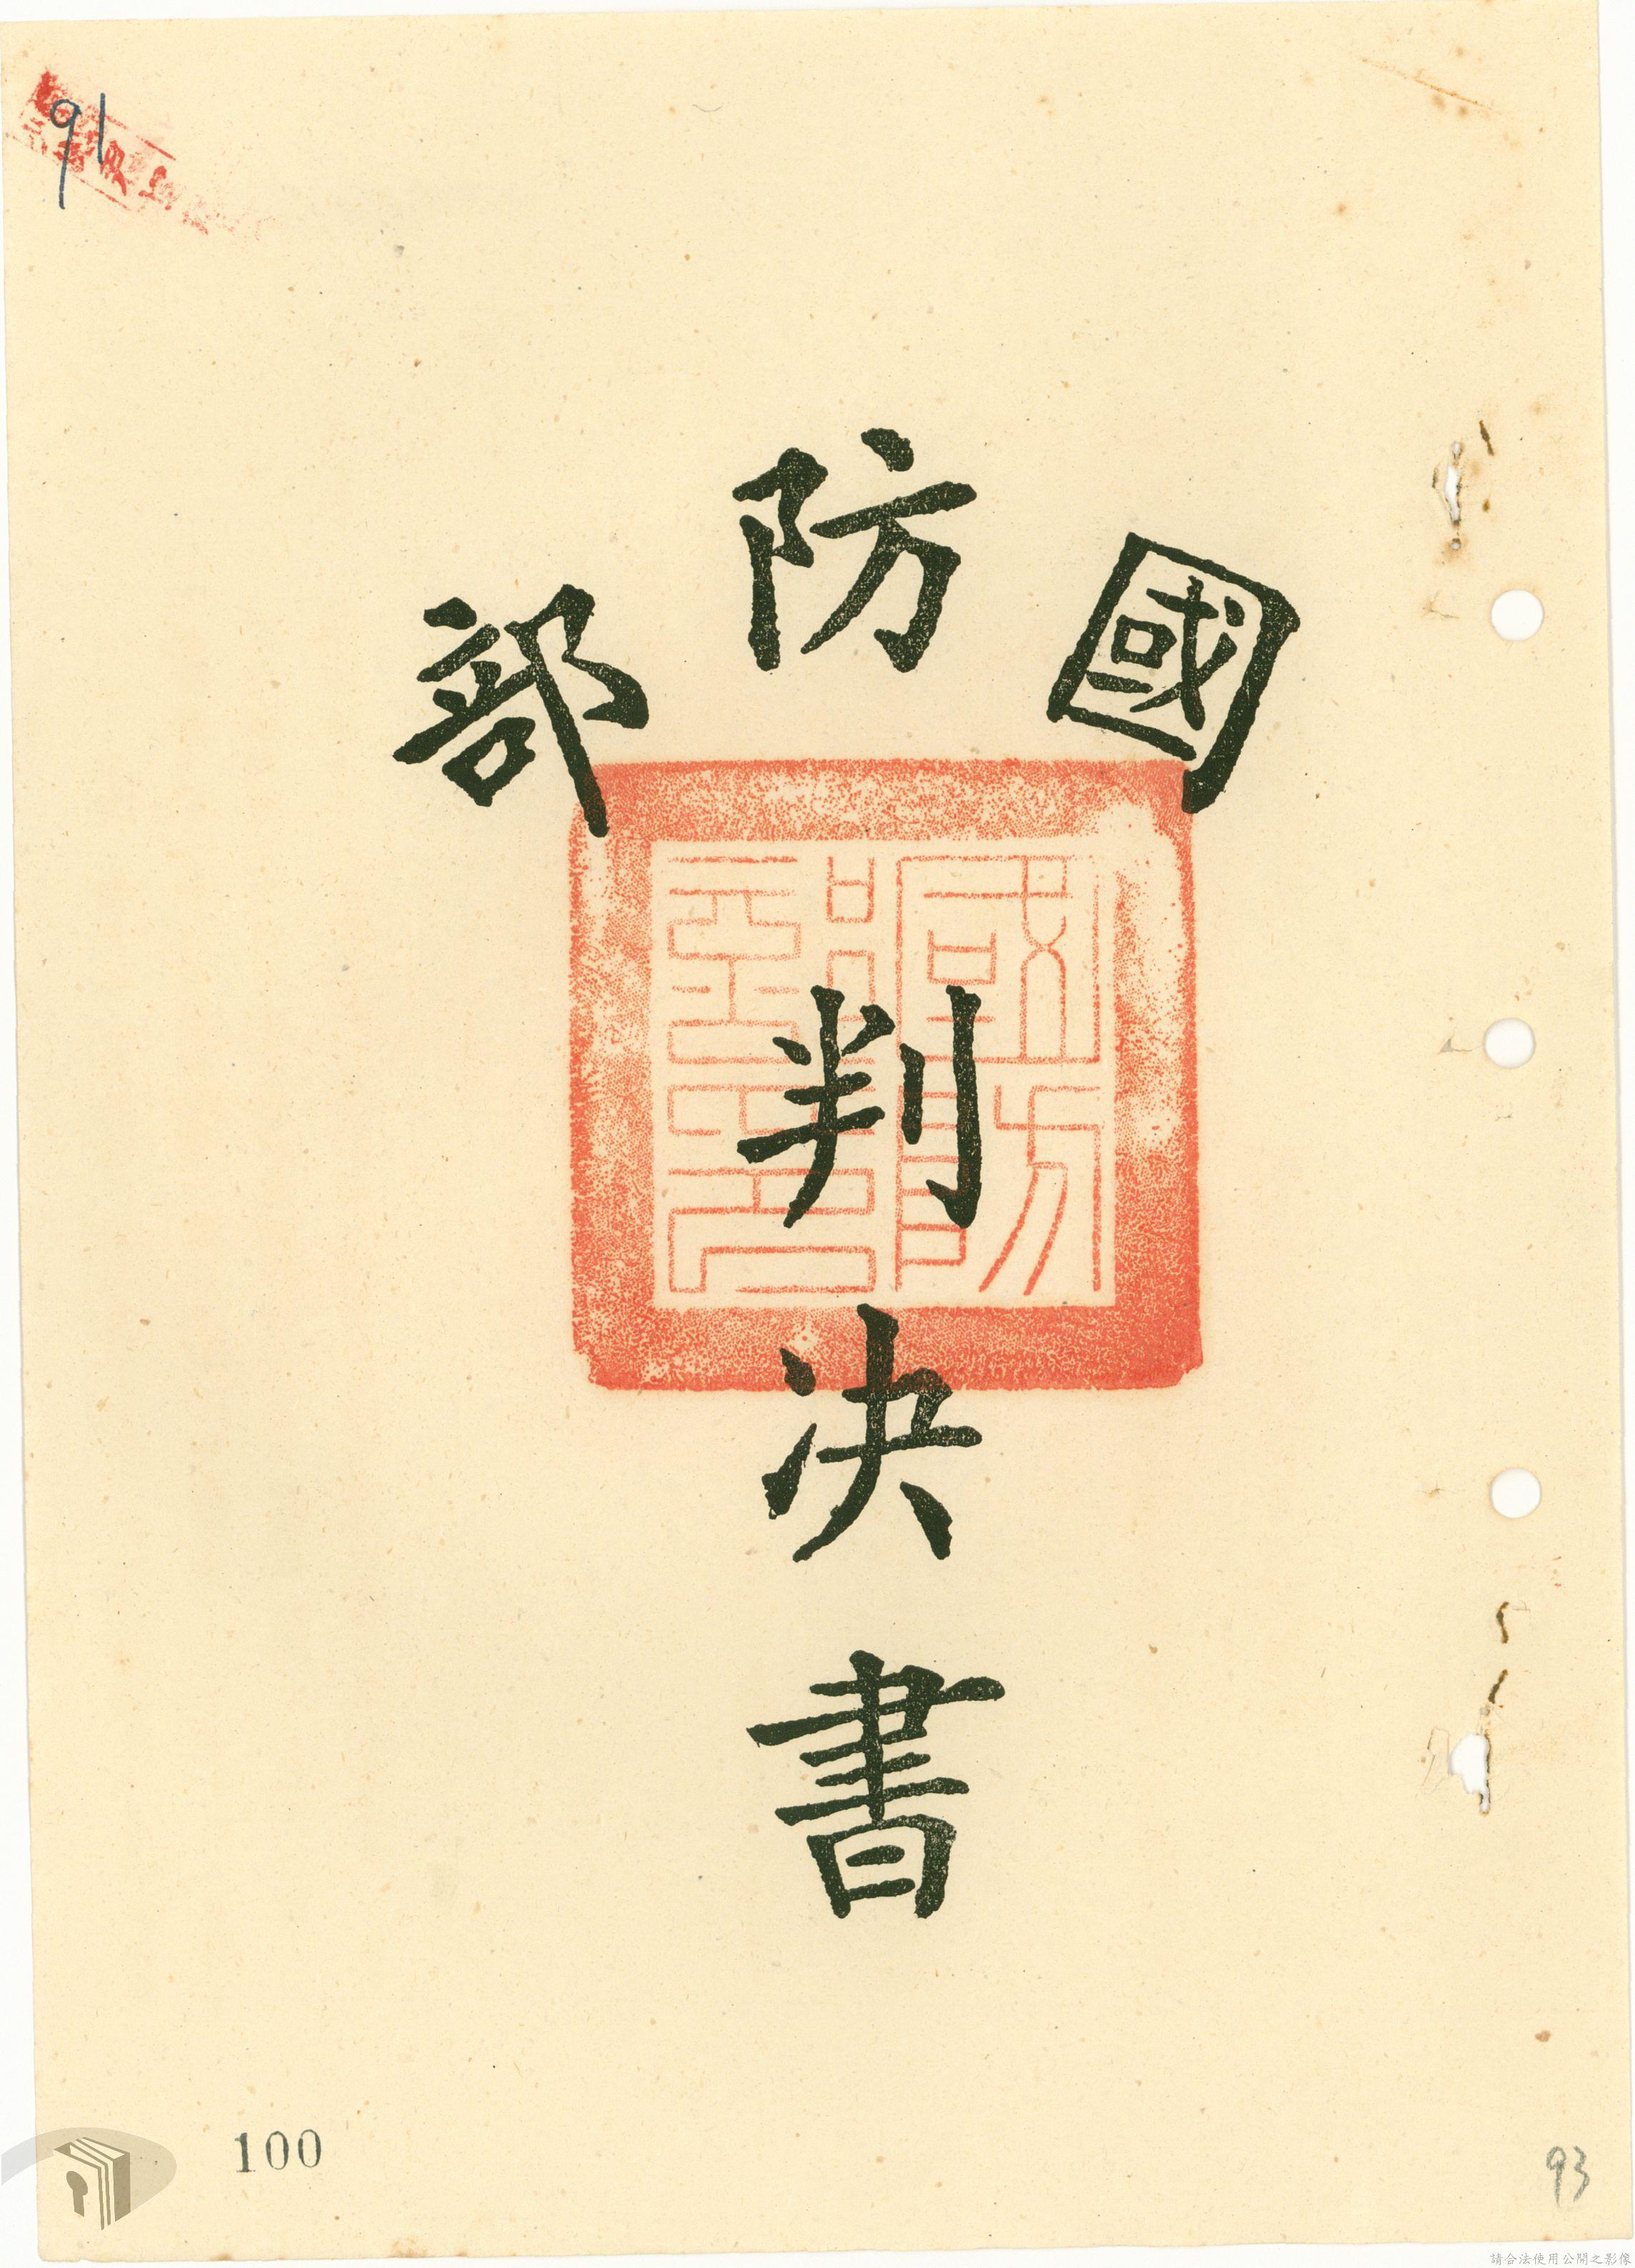 91
國防部
判決書
100
93
請合法使用公開之影像